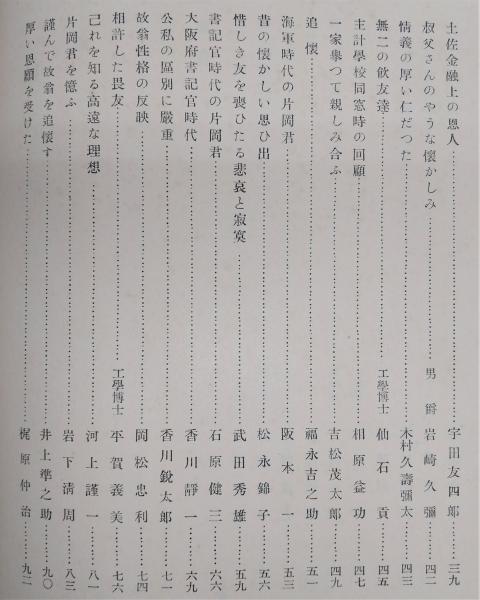 土佐金融上の恩人……宇田友四郎…三九
叔父さんのやうな懷かしみ……男爵 岩崎久彌…四二
情義の厚い仁だつた……木村久壽彌太…四三
無二の飮友達……工學博士 仙石貢…四五
主計學校同窓時の回顧……相原益功…四七
一家擧つて親しみ合ふ……吉松茂太郎…四九
追懷……福永吉之助…五一
海軍時代の片岡君……阪本一…五三
昔の懷かしい思ひ出……松永錦子…五六
惜しき友を喪ひたる悲哀と寂寞……武田秀雄…五九
書記官時代の片岡君……石原健三…六六
大阪府書記官時代……香川靜一…六九
公私の區別に嚴重……香川銳太郎…七一
故翁性格の反映……岡松忠利…七四
相許した畏友……工學博士 平賀義美…七六
己れを知る高遠な理想……河上謹一…八一
片岡君を憶ふ……岩下淸周…八三
謹んで故翁を追懷す……井上準之助…九〇
厚い恩顧を受けた……梶原仲治…九二